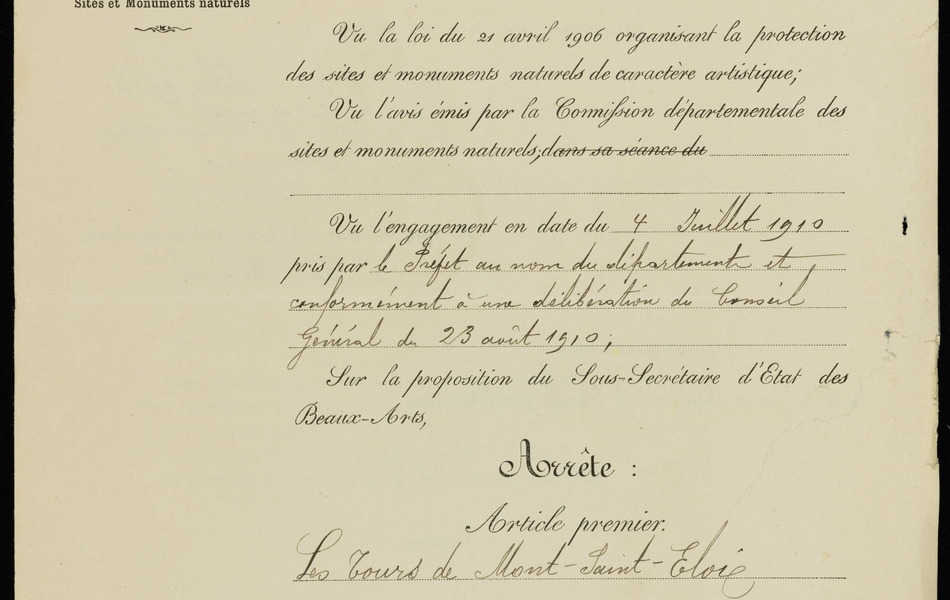 Sites et Monuments naturels
Vu la loi du 21 avril 1906 organisant la protection
des sites et monuments naturels de caractère artistique;
Vu l'avis émis par la Commission départementale des
sites et monuments naturels; dans sa séance du
Vu l'engagement en date du 4 Juillet 1910
pris par le Préfet au nom du département et
conformément à une délibération du Conseil
Général du 23 août 1910;
Sur la proposition du Sous-Secrétaire d'Etat des
Beaux-Arts,
Arrête :
Article premier.
Les Tours de Mont-Saint-Eloi